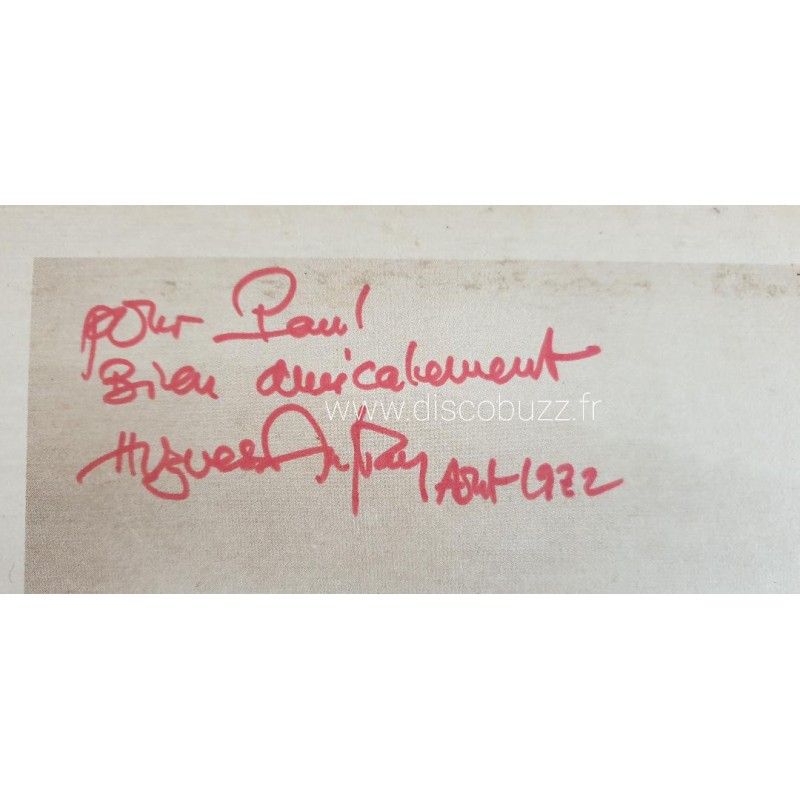 pour Paul
Bien amicalement
www.discobuzz.fr
Hugues Aufray Août 1972